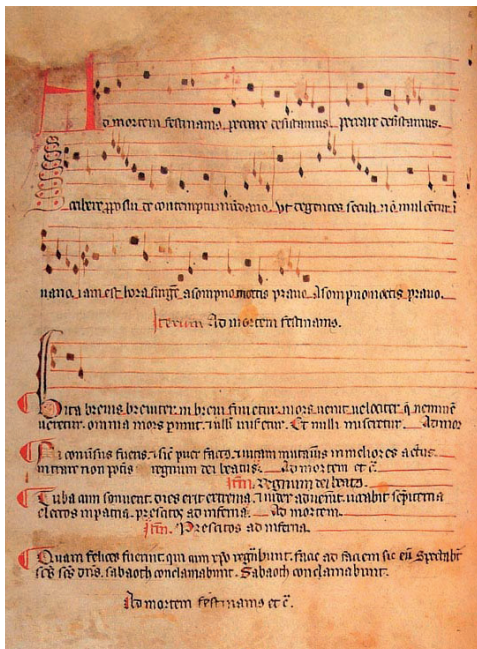 Ad mortem festinamus peccare desistamus peccare desistamus.
Scribere pposui de contemptu mūdano. Vt degentes seculi nō mulcētur ī
vano. iam est hora surgē a sompno mortis pravo. A sompno mortis pravo.
Iterum Ad mortem festinamus.
Vita brevis breviter in brevi finietur. mors venit velociter q̄ neminē
veretur. omnia mors pimit. ⁊ nulli miseretur. Et nulli miseretur. Ad mor
Ni conūsus fueris. ⁊ sic puer factꝰ. ⁊ vitam mutaūis in meliores actus.
intrare non potis regnum dei beatus. Ad mortem et c̄.
Itm̄. Regnum dei beatꝰ.
Tuba cum sonuerit. dies erit extrema. ⁊ iudex advenīt. vocabit sēpiterna
electos in patria. prescitos ad inferna. Ad mortem.
Itm̄. Prescitos ad inferna.
Quam felices fuerint. qui cum xp̄o regn̄bunt. facie ad faciem sic eū spectabt̄
scs̄ scs̄ dn̄s. sabaoth conclamabunt. Sabaoth conclamabunt.
Ad mortem festinamus et c̄.